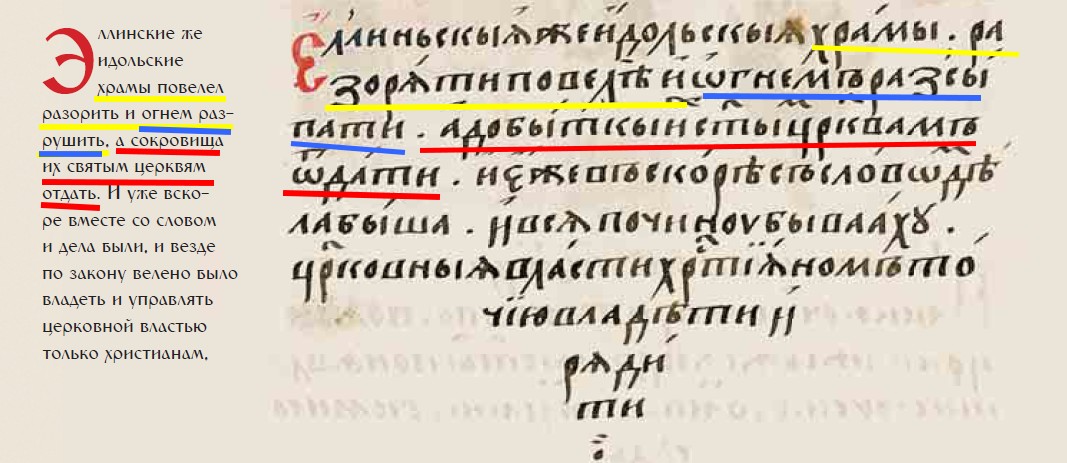 Эллинские же
идольские
храмы повелел
разорить и огнем раз-
рушить, а сокровища
их святым церквям
отдать. И уже вско-
ре вместе со словом
и дела были, и везде
по закону велено было
владеть и управлять
церковной властью
только христианам.
Єлликьскыѧ же їдольскыѧ храмы. ра
зорѧти повелѣ и ѿгнемъ разсы
пати. а добытъкы и с҃тыи цр҃квамъ
ѿдати. и се же въскорѣ съсловѡ дѣ
ла быша. и всѧ почину бываахꙋ.
цр҃ковныѧ власти хр҃тїѧномъ то
чїю владѣти и
рѧди
ти